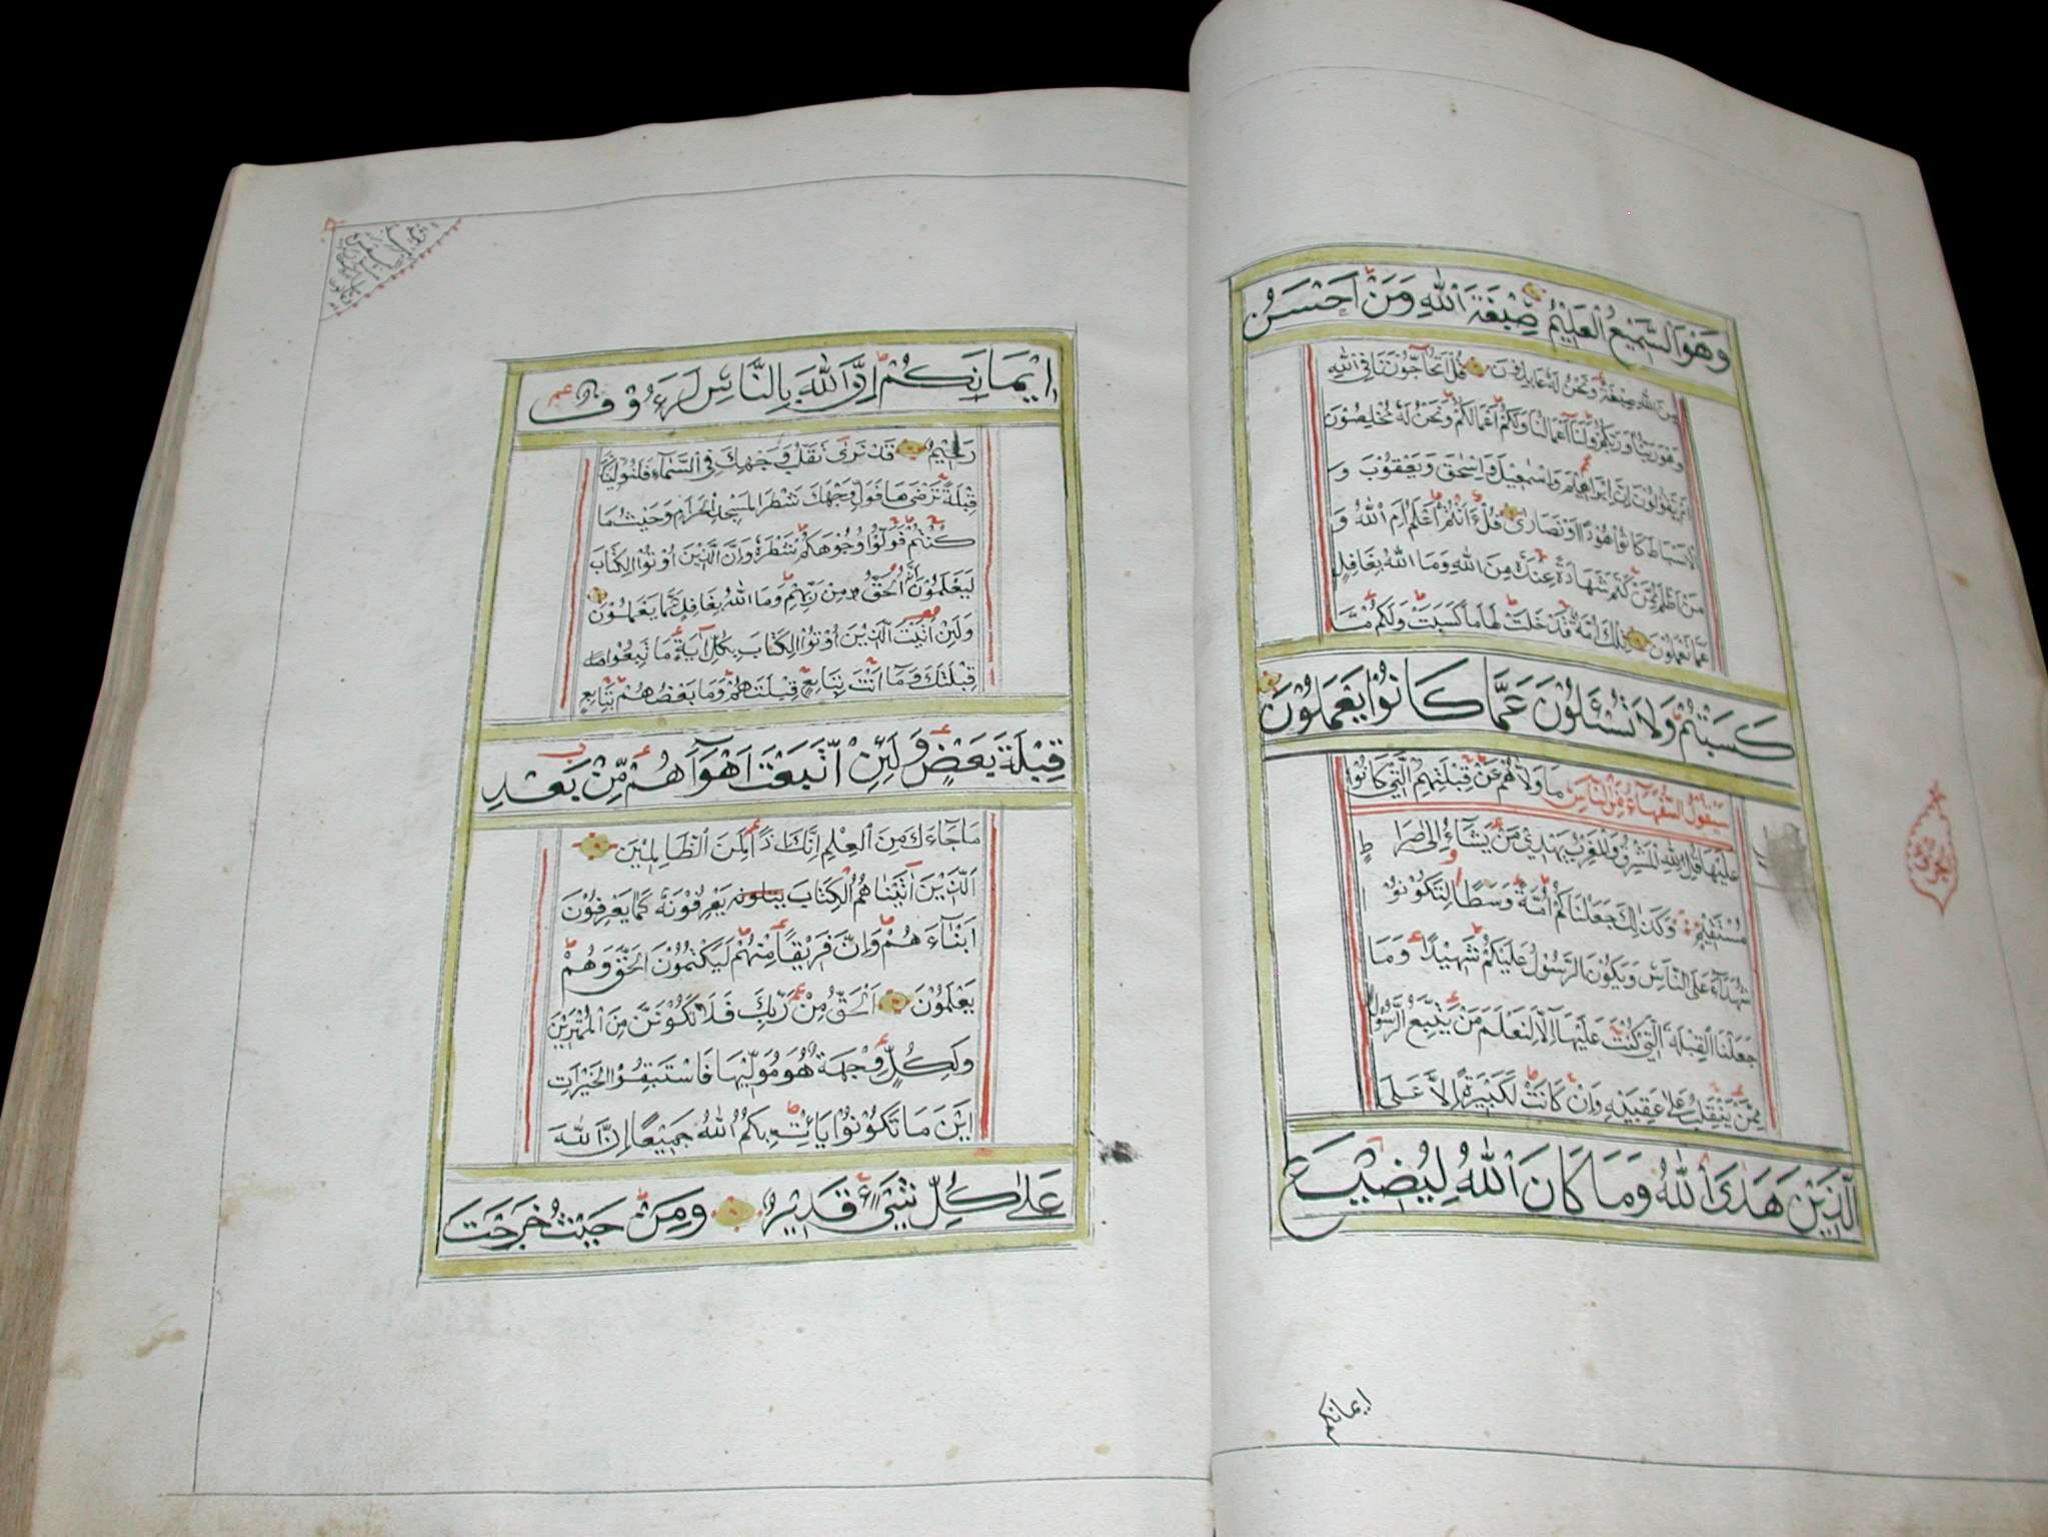 وَهُوَ السَّمِيْعُ الْعَلِيْمُ صِبْغَةَ اللّٰهِ وَمَنْ اَحْسَنُ
مِنَ اللّٰهِ صِبْغَةً وَنَحْنُ لَهٗ عَابِدُوْنَ قُلْ اَتُحَآجُّوْنَنَا فِي اللّٰهِ
وَهُوَ رَبُّنَا وَرَبُّكُمْ وَلَنَا اَعْمَالُنَا وَلَكُمْ اَعْمَالُكُمْ وَنَحْنُ لَهٗ مُخْلِصُوْنَ
اَمْ يَقُوْلُوْنَ اِنَّ اِبْرَاهِيْمَ وَاِسْمٰعِيْلَ وَاِسْحٰقَ وَيَعْقُوْبَ وَ
الْاَسْبَاطَ كَانُوْا هُوْدًا اَوْ نَصَارٰى قُلْ ءَاَنْتُمْ اَعْلَمُ اَمِ اللّٰهُ وَ
مَنْ اَظْلَمُ مِمَّنْ كَتَمَ شَهَادَةً عِنْدَهٗ مِنَ اللّٰهِ وَمَا اللّٰهُ بِغَافِلٍ
عَمَّا تَعْمَلُوْنَ تِلْكَ اُمَّةٌ قَدْ خَلَتْ لَهَا مَا كَسَبَتْ وَلَكُمْ مَّا
كَسَبْتُمْ وَلَا تُسْئَلُوْنَ عَمَّا كَانُوْا يَعْمَلُوْنَ
سَيَقُوْلُ السُّفَهَآءُ مِنَ النَّاسِ مَا وَلّٰهُمْ عَنْ قِبْلَتِهِمُ الَّتِيْ كَانُوْا
عَلَيْهَا قُلْ لِلّٰهِ الْمَشْرِقُ وَالْمَغْرِبُ يَهْدِيْ مَنْ يَشَآءُ اِلٰى صِرَاطٍ
مُسْتَقِيْمٍ وَكَذٰلِكَ جَعَلْنَاكُمْ اُمَّةً وَسَطًا لِتَكُوْنُوْا
شُهَدَآءَ عَلَى النَّاسِ وَيَكُوْنَ الرَّسُوْلُ عَلَيْكُمْ شَهِيْدًا وَمَا
جَعَلْنَا الْقِبْلَةَ الَّتِيْ كُنْتَ عَلَيْهَآ اِلَّا لِنَعْلَمَ مَنْ يَتَّبِعُ الرَّسُوْلَ
مِمَّنْ يَنْقَلِبُ عَلٰى عَقِبَيْهِ وَاِنْ كَانَتْ لَكَبِيْرَةً اِلَّا عَلَى
الَّذِيْنَ هَدَى اللّٰهُ وَمَا كَانَ اللّٰهُ لِيُضِيْعَ
ايمانكم
اِيْمَانَكُمْ اِنَّ اللّٰهَ بِالنَّاسِ لَرَءُوْفٌ
رَحِيْمٌ قَدْ نَرٰى تَقَلُّبَ وَجْهِكَ فِي السَّمَآءِ فَلَنُوَلِّيَنَّكَ
قِبْلَةً تَرْضٰىهَا فَوَلِّ وَجْهَكَ شَطْرَ الْمَسْجِدِ الْحَرَامِ وَحَيْثُ مَا
كُنْتُمْ فَوَلُّوْا وُجُوْهَكُمْ شَطْرَهٗ وَاِنَّ الَّذِيْنَ اُوْتُوا الْكِتَابَ
لَيَعْلَمُوْنَ اَنَّهُ الْحَقُّ مِنْ رَبِّهِمْ وَمَا اللّٰهُ بِغَافِلٍ عَمَّا يَعْمَلُوْنَ
وَلَئِنْ اَتَيْتَ الَّذِيْنَ اُوْتُوا الْكِتَابَ بِكُلِّ اٰيَةٍ مَا تَبِعُوْا
قِبْلَتَكَ وَمَآ اَنْتَ بِتَابِعٍ قِبْلَتَهُمْ وَمَا بَعْضُهُمْ بِتَابِعٍ
قِبْلَةَ بَعْضٍ وَلَئِنِ اتَّبَعْتَ اَهْوَآءَهُمْ مِّنْ بَعْدِ
مَا جَآءَكَ مِنَ الْعِلْمِ اِنَّكَ اِذًا لَمِنَ الظَّالِمِيْنَ
اَلَّذِيْنَ اٰتَيْنَاهُمُ الْكِتَابَ يتلونه يَعْرِفُوْنَهٗ كَمَا يَعْرِفُوْنَ
اَبْنَآءَهُمْ وَاِنَّ فَرِيْقًا مِنْهُمْ لَيَكْتُمُوْنَ الْحَقَّ وَهُمْ
يَعْلَمُوْنَ اَلْحَقُّ مِنْ رَبِّكَ فَلَا تَكُوْنَنَّ مِنَ الْمُمْتَرِيْنَ
وَلِكُلٍّ وِجْهَةٌ هُوَ مُوَلِّيْهَا فَاسْتَبِقُوا الْخَيْرَاتِ
اَيْنَ مَا تَكُوْنُوْا يَأْتِ بِكُمُ اللّٰهُ جَمِيْعًا اِنَّ اللّٰهَ
عَلٰى كُلِّ شَيْءٍ قَدِيْرٌ وَمِنْ حَيْثُ خَرَجْتَ